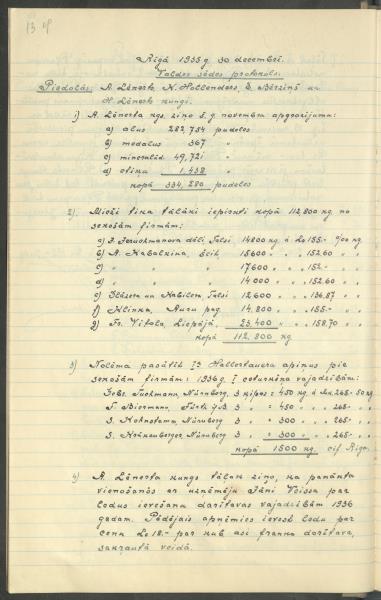 13
Rīgā 1935 g. 30 decembrī.
Valdes sēdes protokols.
Piedalās: A. Lēnerts, K. Hollenders, E. Bērziņš un
H. Lēnerts kungi.
1) A. Lēnerta kgs. ziņo š.g. novembra apgrozījumu:
a) alus 282,754 pudeles
b) medalus 367 "
c) minerālūd. 49,721 "
d) etiķa 1,438 "
kopā 334,280 pudeles
2) Mieži tika tālāki iepirkti kopā 112,800 kg no
sekošām firmām:
a) J. dēli, Talsi 14800 kg á Ls 155.- %oo kg.
b) A. Kabalkina, 15600 " " 152.60 " "
c) " " 17600 " " 152.- " "
d) " " 14000 " " 152.60 " "
e) un Kabilera, Talsi 12,600 " " 136.87 " "
f) Klinka, Auru pag. 14.800 " " 155.- " "
g) Fr. Vītola, Liepājā, 23,400 " " 158.70 " "
kopā 112,800 kg
3) Nolēma pasūtīt Hallertauera apiņus pie
sekošām firmām: 1936g. I ceturkšņa vajadzībām:
Gebr. Tuchmann, Nürnberg, 3 ķīpas = 450 kg. á 265.- 50 kg
T. Biermann, Fürth i/B 3 " = 450 " " 265.- " "
S. Kohnstamm, Nürnberg 3 " = 300 " " 265.- " "
S. Krünzuberger, Nürnberg 3 " = 300 " " 265.- " "
kopā 1500 kg. cif. Riga.
4) A. Lēnerta kungs tālāk ziņo, ka panākta
vienošanās ar uzņēmēju Jāni Veissu par
ledus ievešanu darītavas vajadzībām 1936
gadam. Pēdējais apņēmies ievest ledu par
cenu Ls 18.- par kub. asi franko darītava,
sakrautā veidā.